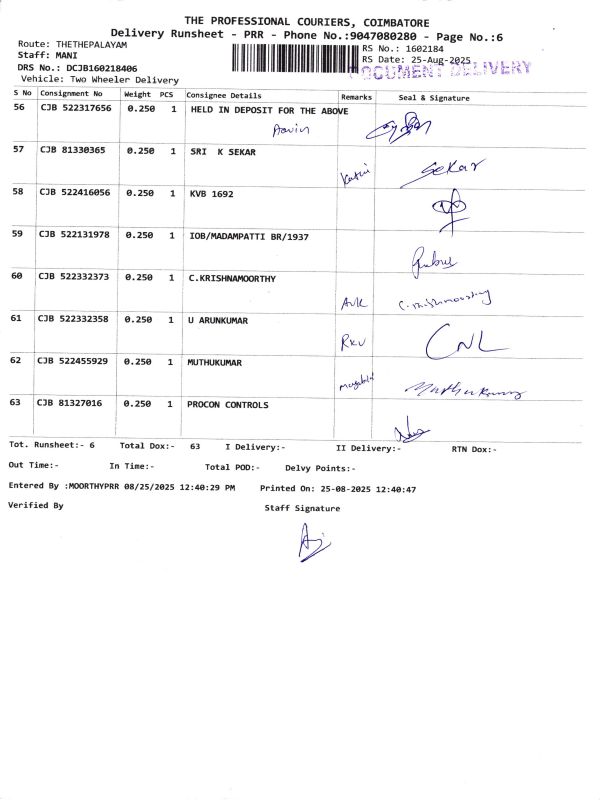 THE PROFESSIONAL COURIERS, COIMBATORE
Delivery Runsheet - PRR - Phone No.:9047080280 - Page No.:6
Route: THETHEPALAYAM
RS No.: 1602184
Staff: MANI
RS Date: 25-Aug-2025
DOCUMENT DELIVERY
DRS No.: DCJB160218406
Vehicle: Two Wheeler Delivery
S No Consignment No Weight PCS Consignee Details Remarks Seal & Signature
56 CJB 522317656 0.250 1 HELD IN DEPOSIT FOR THE ABOVE
57 CJB 81330365 0.250 1 SRI K SEKAR
Sekar
58 CJB 522416056 0.250 1 KVB 1692
59 CJB 522131978 0.250 1 IOB/MADAMPATTI BR/1937
60 CJB 522332373 0.250 1 C.KRISHNAMOORTHY
C. Krishnamoorthy
61 CJB 522332358 0.250 1 U ARUNKUMAR
CNL
62 CJB 522455929 0.250 1 MUTHUKUMAR
Muthukumar
63 CJB 81327016 0.250 1 PROCON CONTROLS
Tot. Runsheet:- 6 Total Dox:- 63 I Delivery:- II Delivery:- RTN Dox:-
Out Time:- In Time:- Total POD:- Delvy Points:-
Entered By :MOORTHYPRR 08/25/2025 12:40:29 PM Printed On: 25-08-2025 12:40:47
Verified By Staff Signature